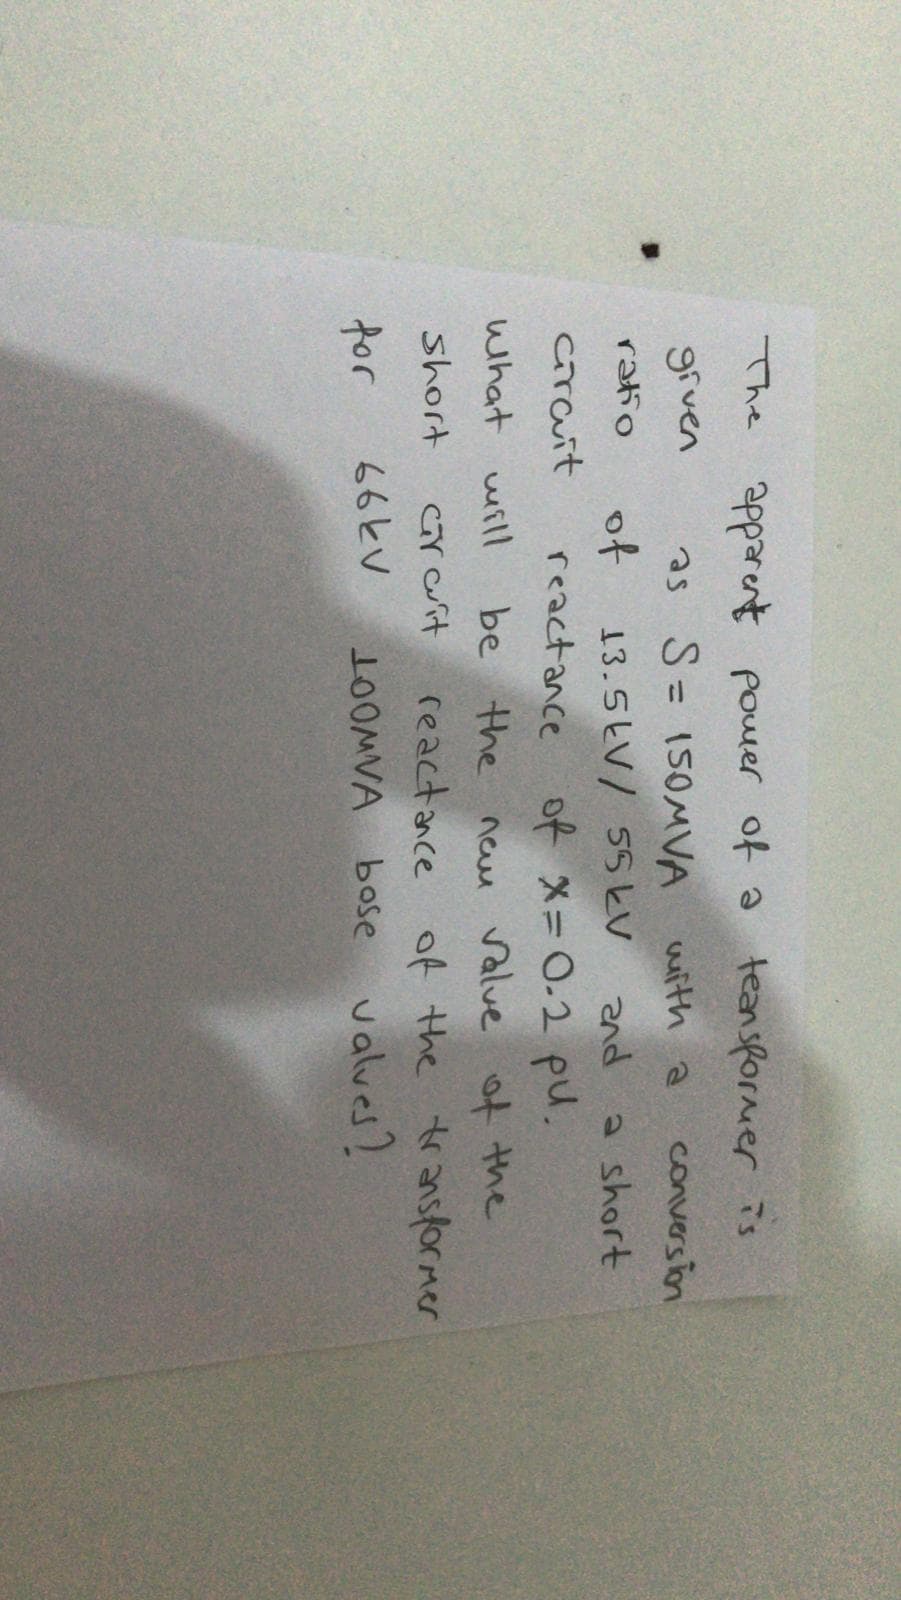 The apparent power of a teansformer is
given as S = 150MVA with a conversion
ratio of 13.5kV/ 55kV and a short
circuit reactance of x=0.2 pu.
What will be the new value of the
short circuit reactance of the transformer
for 66kV 100MVA base values?